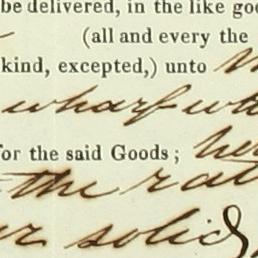 be delivered, in the like goo
(all and every the
kind, excepted,) unto
wharf
for the said Goods; he
the rat
solid